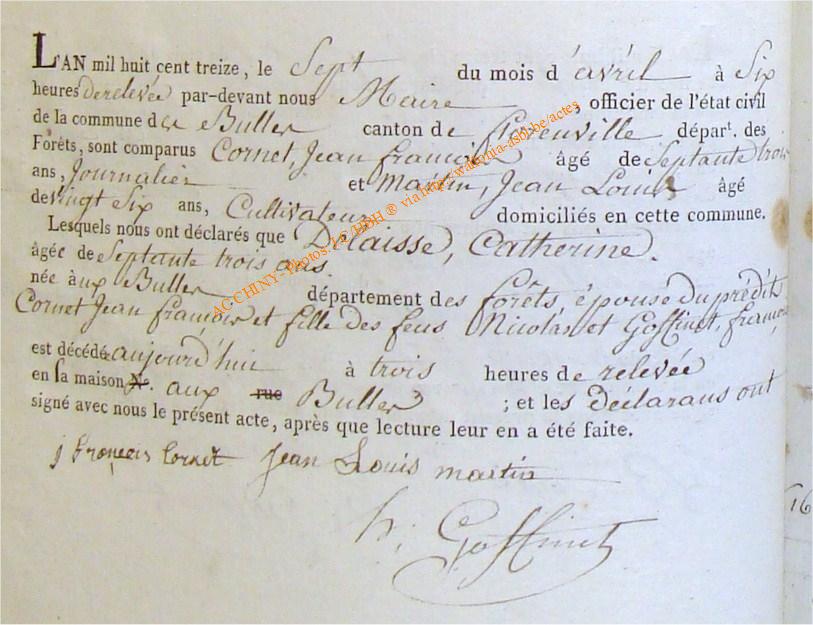 L'AN mil huit cent treize, le Sept du mois d'avril à Six
heures de relevée par-devant nous Maire, officier de l'état civil
de la commune des Bulles canton de florenville départ. des
Forêts, sont comparus Cornet, Jean françois âgé de Septante trois
ans, Journalier et Martin, Jean Louis âgé
de vingt Six ans, Cultivateur domiciliés en cette commune.
Lesquels nous ont déclarés que Delaisse, Catherine.
âgée de Septante trois ans.
née aux Bulles département des forêts, épouse du prédit
Cornet Jean françois et fille des feus Nicolas et Goffinet, françoise
est décédée aujourd'hui à trois heures de relevée
en sa maison No. aux rue Bulles ; et les déclarans ont
signé avec nous le présent acte, après que lecture leur en a été faite.
j françois Cornet Jean Louis martin
h. Goffinet
16
AC CHINY - Photos: LC/HDH ® via http://walonia-asbl.be/actes